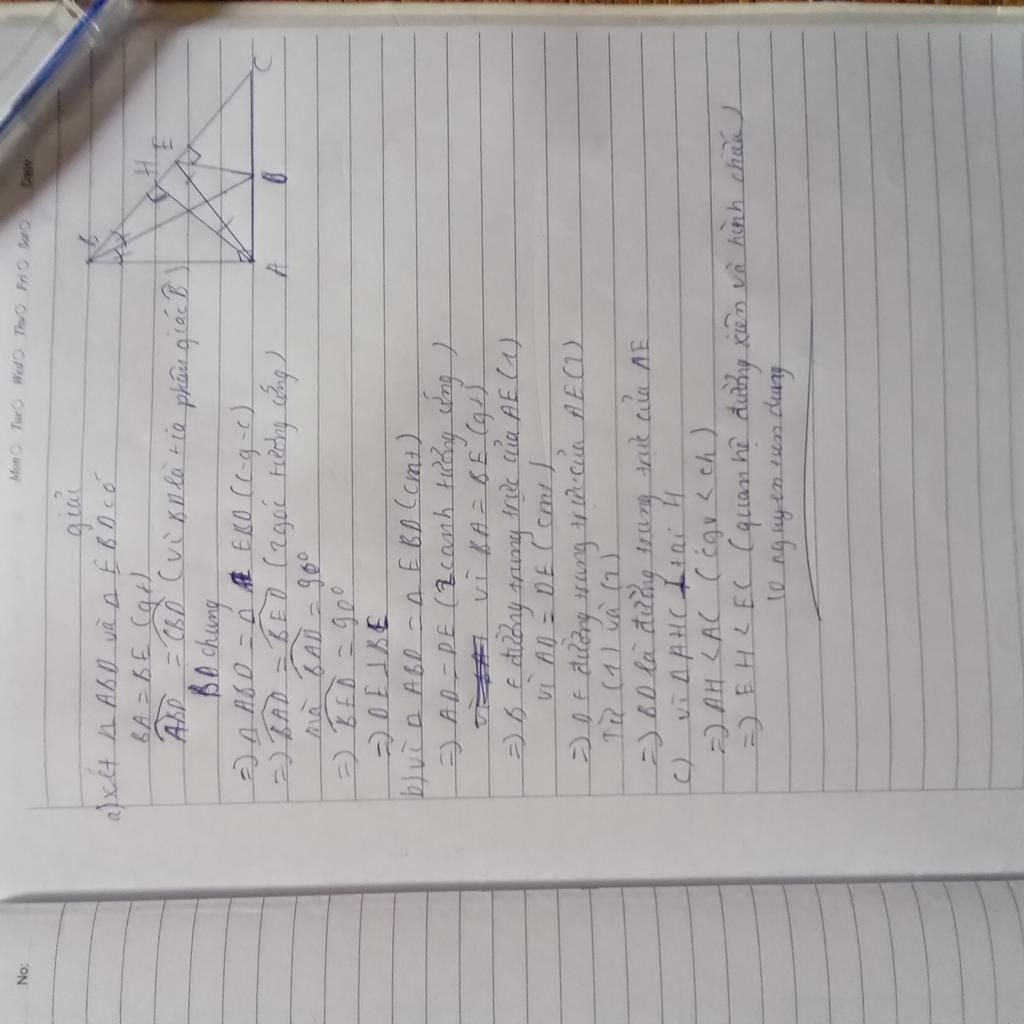 No:
Mon Tue Wed Thu Fri Sat Date
giải
a) xét Δ ABD và Δ EBD có
BA = BE (gt)
ABD = CBD (vì BD là tia phân giác B)
BD chung
=) Δ ABD = Δ EBD (c-g-c)
=) BAD = BED (2 góc tương ứng)
mà BAD = 90°
=) BED = 90°
=) DE ⊥ BE
b) vì Δ ABD = Δ EBD (cmt)
=) AD = DE (2 cạnh tương ứng)
vì BA = BE (gt)
=) B ∈ đường trung trực của AE (1)
vì AD = DE (cmt)
=) D ∈ đường trung trực của AE (2)
Từ (1) và (2)
=) BD là đường trung trực của AE
c) vì Δ AHC ⊥ tại H
=) AH < AC (cgv < ch)
=) EH < EC (quan hệ đường xiên và hình chiếu)
B
H
E
A
D
C